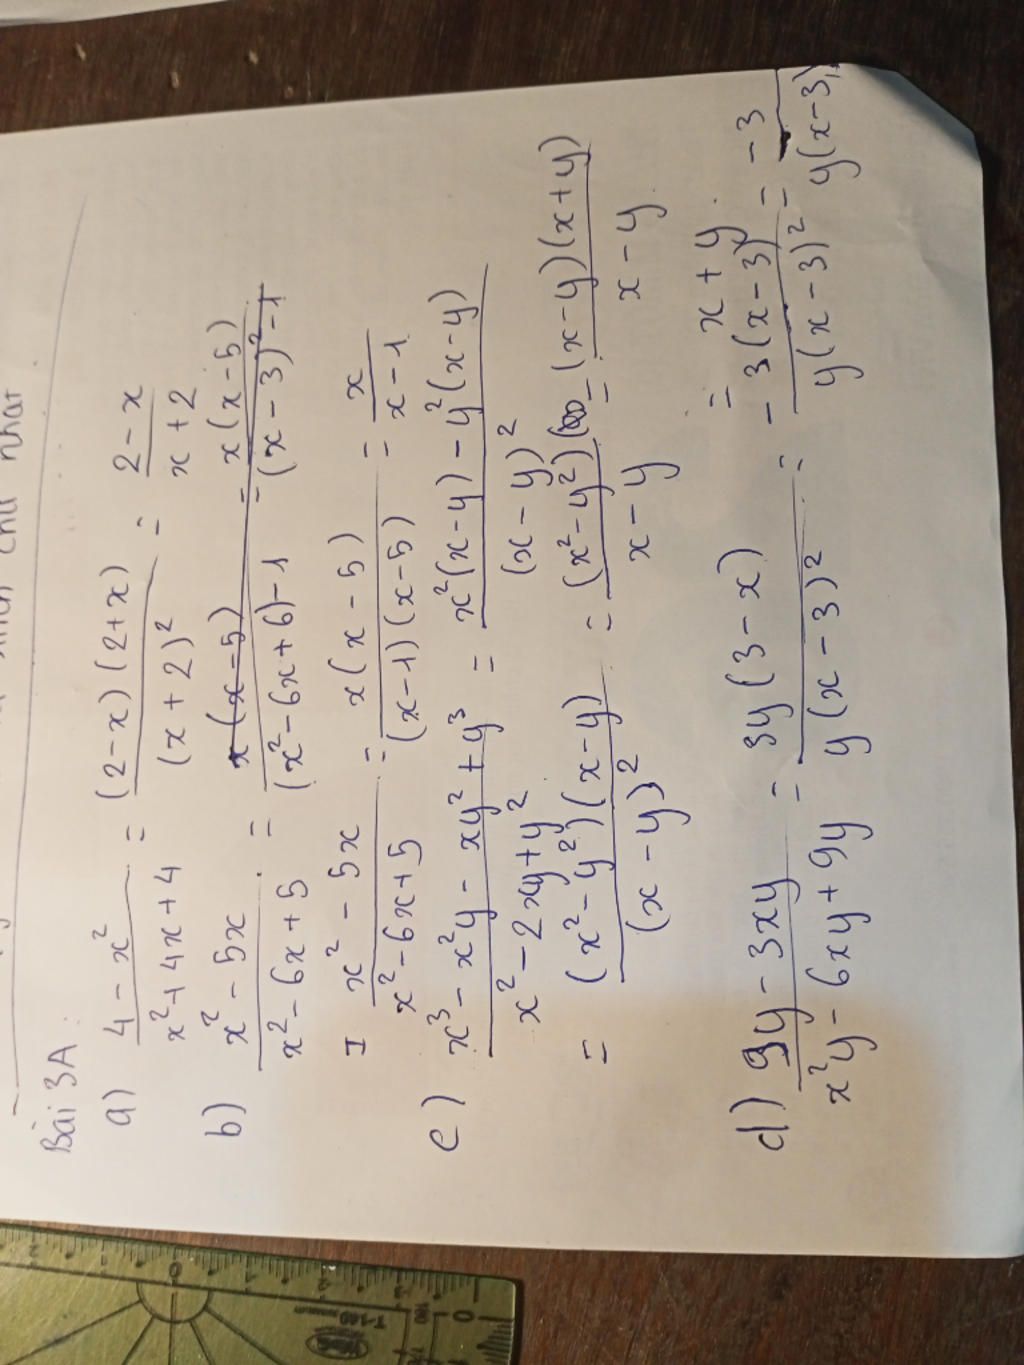 chữ nhat
Bài 3A:
a) \frac{4 - x^2}{x^2 + 4x + 4} = \frac{(2 - x)(2 + x)}{(x + 2)^2} = \frac{2 - x}{x + 2}
b) \frac{x^2 - 5x}{x^2 - 6x + 5} = \frac{x(x - 5)}{(x^2 - 6x + 6) - 1} = \frac{x(x - 5)}{(x - 3)^2 - 1}
I \frac{x^2 - 5x}{x^2 - 6x + 5} = \frac{x(x - 5)}{(x - 1)(x - 5)} = \frac{x}{x - 1}
c) \frac{x^3 - x^2y - xy^2 + y^3}{x^2 - 2xy + y^2} = \frac{x^2(x - y) - y^2(x - y)}{(x - y)^2}
= \frac{(x^2 - y^2)(x - y)}{(x - y)^2} = \frac{(x^2 - y^2)}{x - y} = \frac{(x - y)(x + y)}{x - y}
= x + y
d) \frac{9y - 3xy}{x^2y - 6xy + 9y} = \frac{3y(3 - x)}{y(x - 3)^2} = \frac{-3(x - 3)}{y(x - 3)^2} = \frac{-3}{y(x - 3)}
T-140